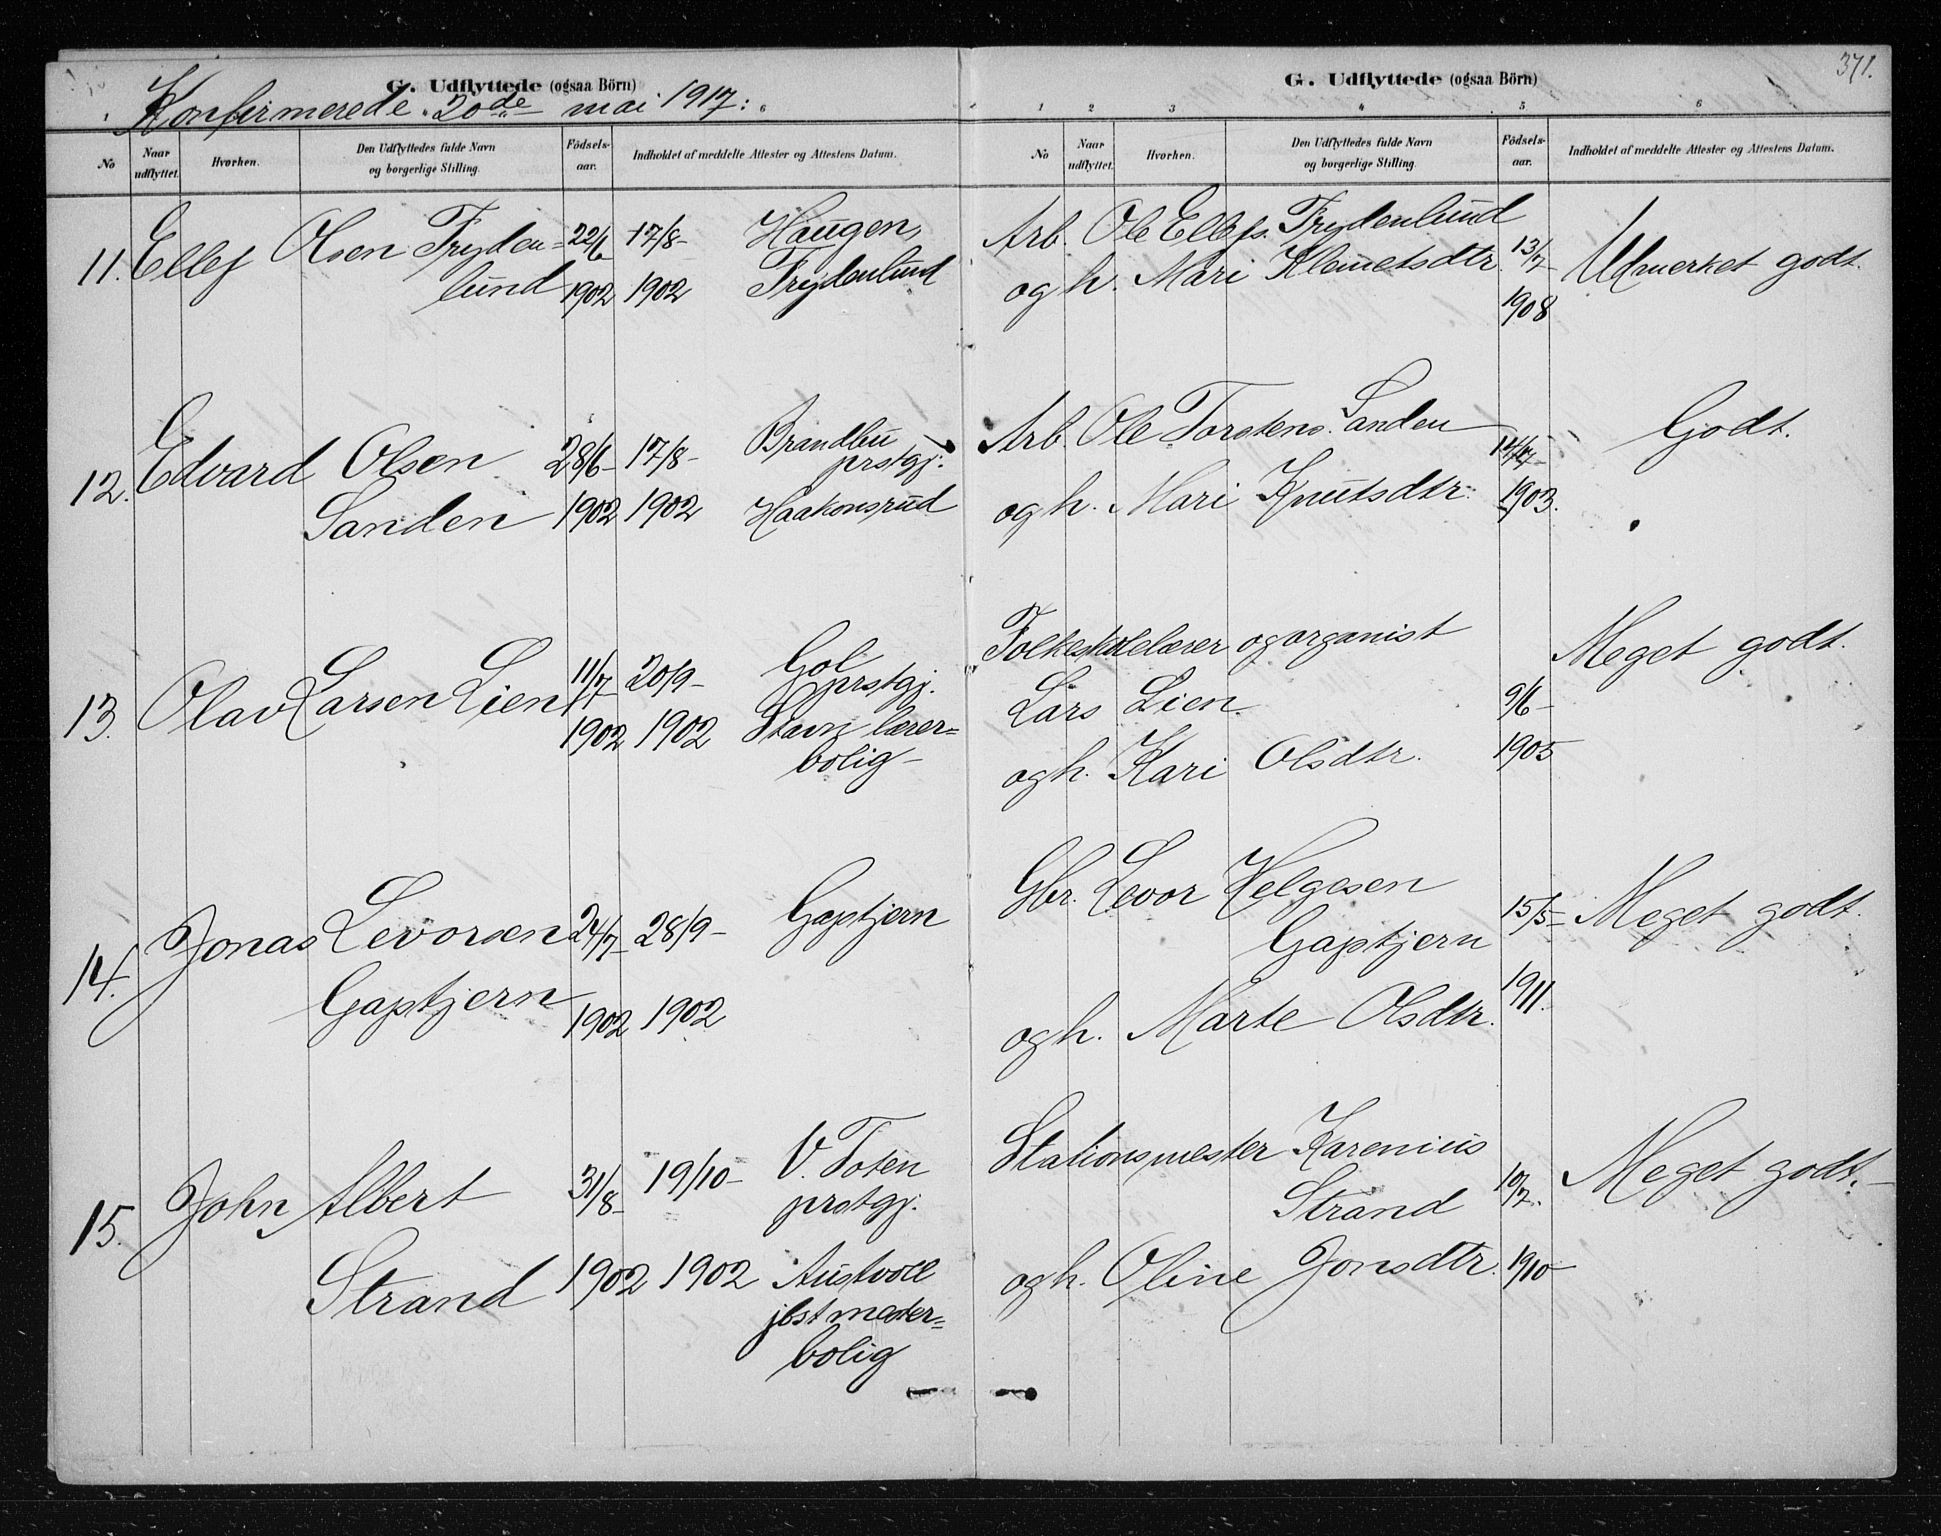 371.
G. Udflyttede (ogsaa Börn)
Konfirmerede 20de mai 1917:
No
Naar udflyttet.
Hvorhen.
Den Udflyttedes fulde Navn og borgerlige Stilling.
Födsels-aar.
Indholdet af meddelte Attester og Attestens Datum.
G. Udflyttede (ogsaa Börn)
1 2 3 4 5 6
No
Naar udflyttet.
Hvorhen.
Den Udflyttedes fulde Navn og borgerlige Stilling.
Födsels-aar.
Indholdet af meddelte Attester og Attestens Datum.
11. Ellef Olsen Fryden- 22/6 17/8- Haugen, Arb. Ole Ellefs. Frydenlund 13/7- Udmerket godt.
lund 1902 1902 Frydenlund og h. Mari Klemetsdtr. 1908
12. Edvard Olsen 28/6- 17/8- Brandbu prstgj. Arb. Ole Torstens. Sanden Godt.
Sanden 1902 1902 Haakonsrud og h. Mari Knutsdtr. 1903.
13. Olav Larsen Lien 11/7- 20/9- Gol prstgj. Folkeskolelærer og organist Meget godt.
1902 1902 Stavn lærer= Lars Lien. 9/6-
bolig- og h. Kari Olsdtr. 1905
14. Jonas Levorsen 24/7- 28/9- Gaptjern Gbr. Levor Helgesen 15/5- Meget godt.
Gaptjern 1902 1902 Gaptjern 1911.
og h. Marte Olsdtr.
15. John Albert 31/8- 19/10- V. Toten prstgj. Stationsmester Karenius Strand 10/7. Meget godt.-
Strand 1902 1902 Austvoll og h. Oline Jonsdtr. 1910
bolig